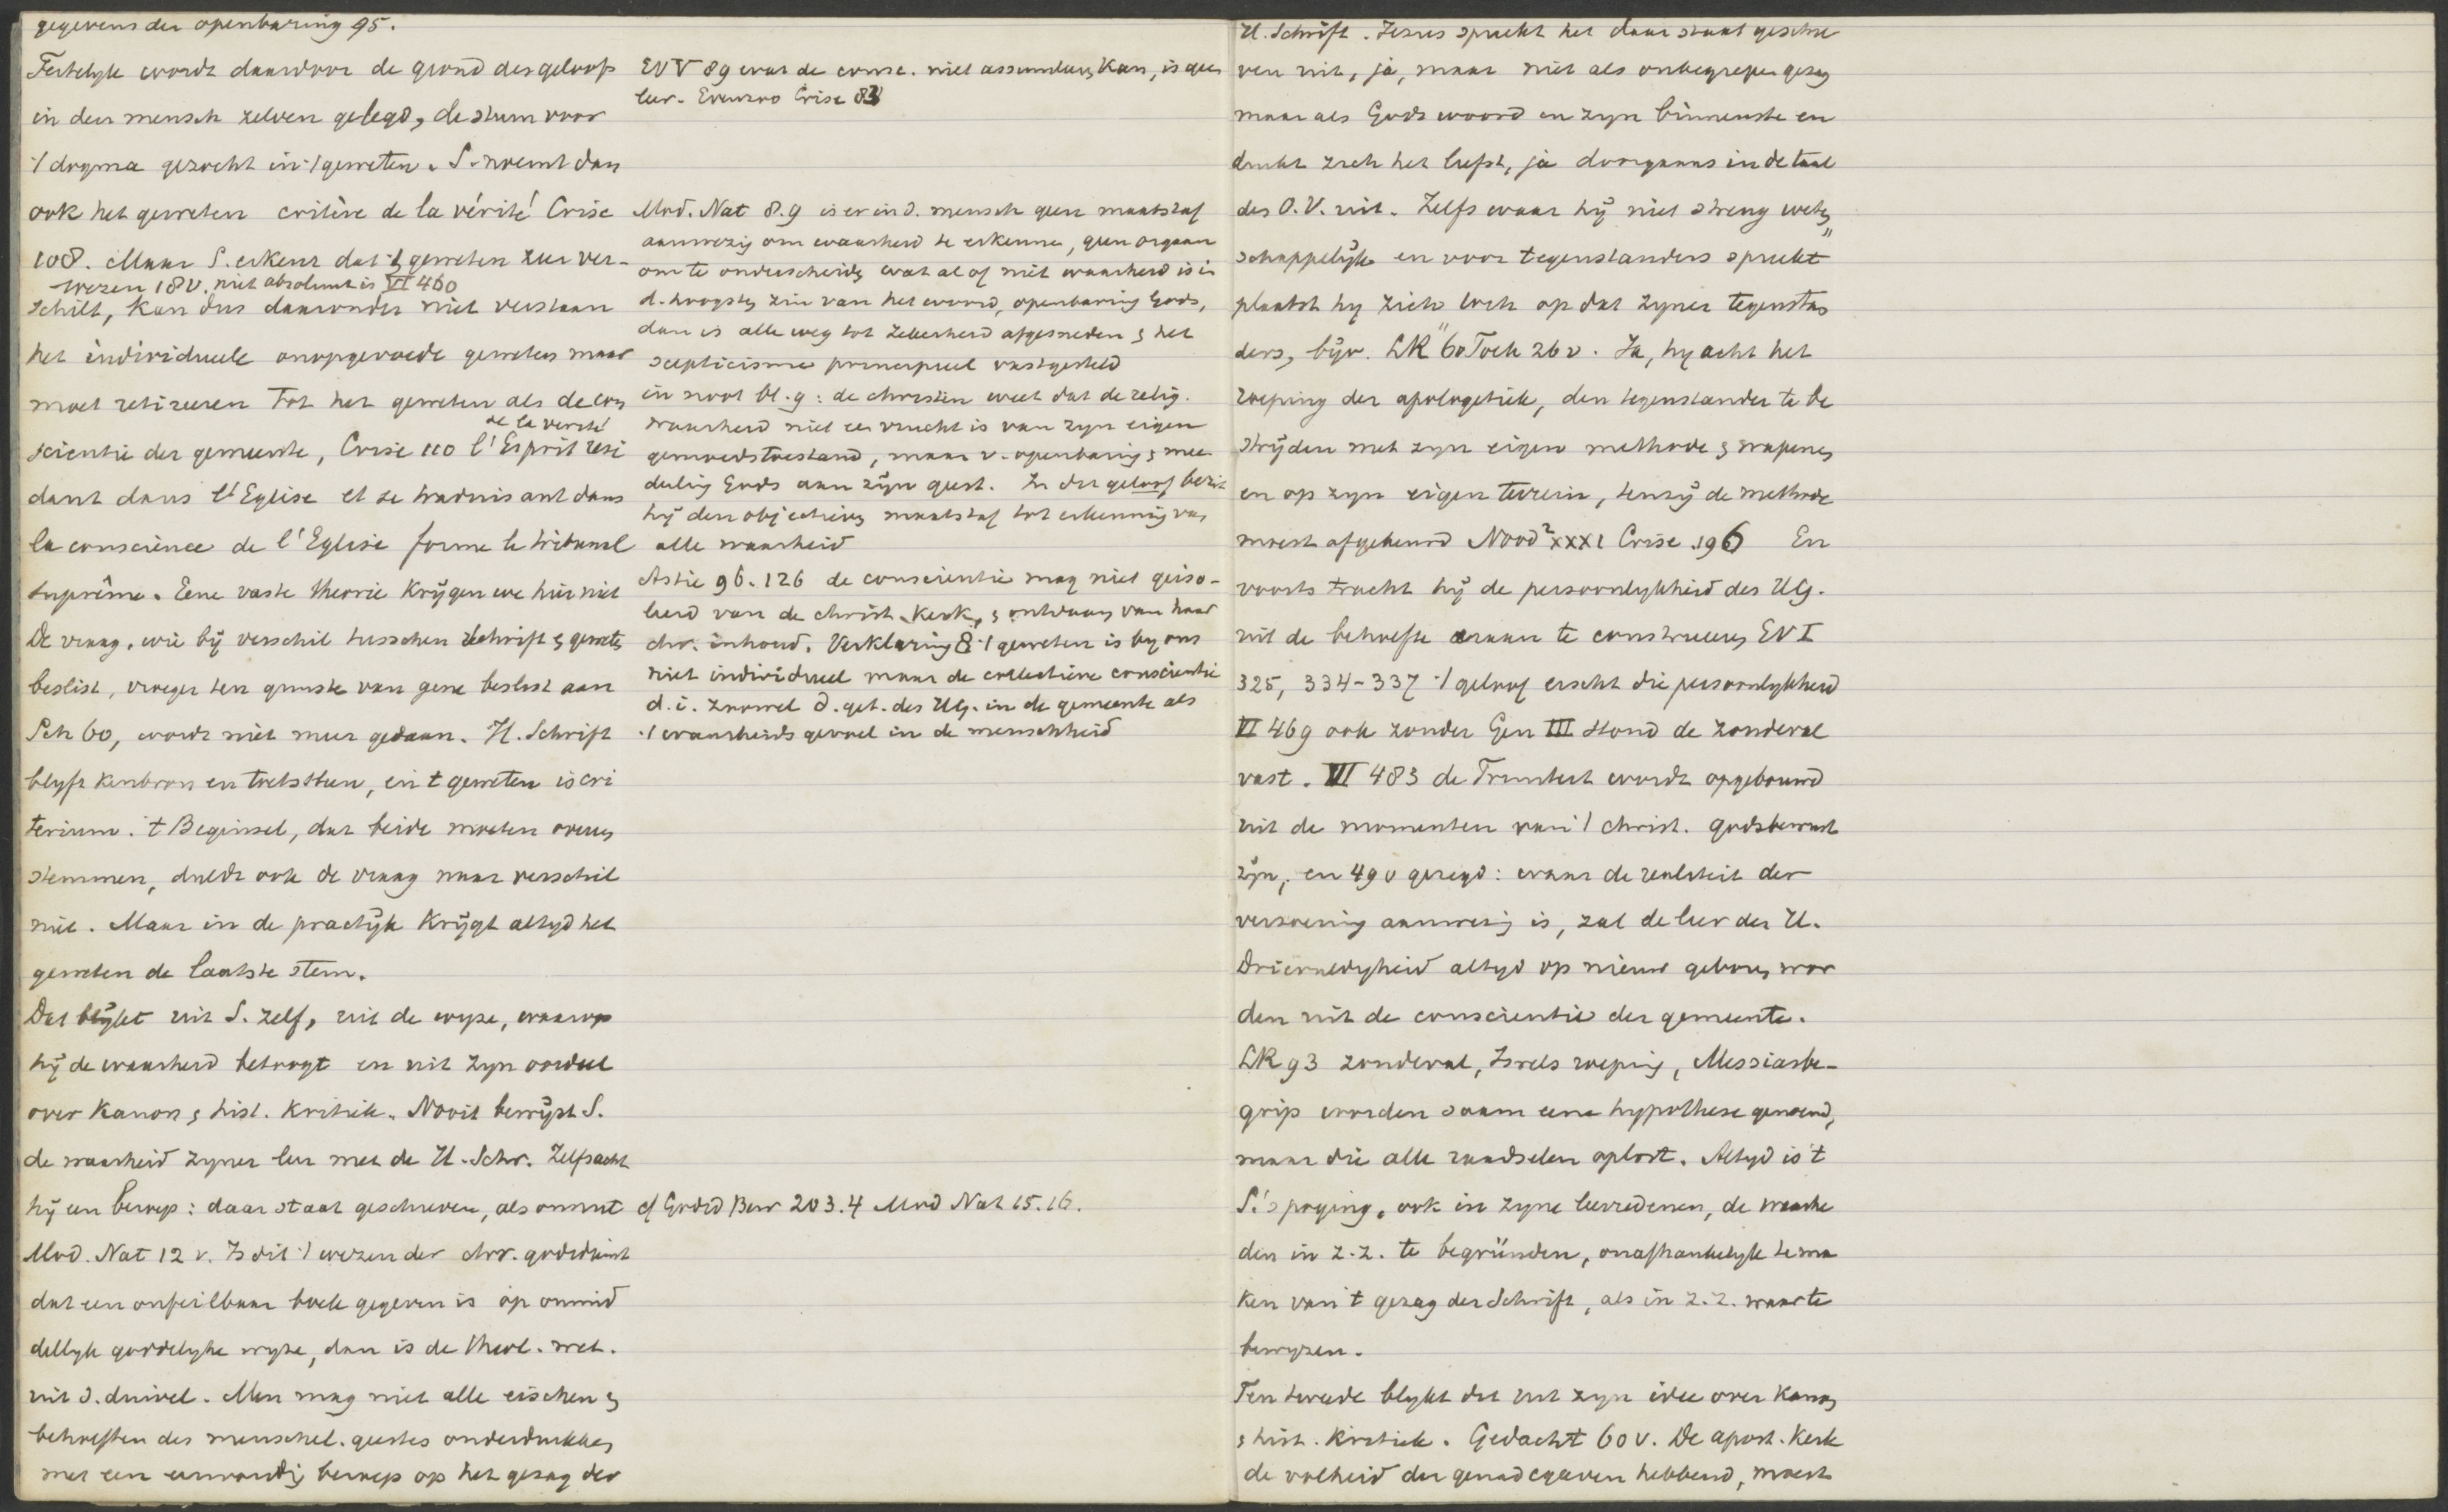 gegevens der openbaring 95.
Feitelyk wordt daardoor de grond des geloofs
in den mensch zelven gelegd, de stem voor
't dogma gezocht in 't geweten. S. noemt dan
ook het geweten critère de la vérité Crise
108. Maar S. erkent dat 't geweten zeer ver-
wezen 18v. niet absoluut is VI 460
schilt, kan dus daaronder niet verstaan
het individueele onopgevoede geweten maar
moet retireeren tot het geweten als de con
de la verité
scientie der gemeente, Crise 110 l'Esprit rési
dant dans l'Eglise et se traduisant dans
la conscience de l'Eglise forme le tribunal
suprême. Eene vaste theorie krygen we hier niet
De vraag, wie bij verschil tusschen schrift & geweten
beslist, vroeger ten gunste van gene beslist aan
Sch 60, wordt niet meer gedaan. H. Schrift
blyft kenbron en toetssteen, en 't geweten is cri
terium. 't Beginsel, dat beide moeten overeen
stemmen, duldt ook de vraag naar verschil
niet. Maar in de practyk krijgt altyd het
geweten de laatste stem.
Dat blijkt uit S. zelf, uit de wyze, waarop
hij de waarheid betoogt en uit zyn oordeel
over Kanon & hist. kritiek. Nooit bewijst S.
de waarheid zyner leer met de H. Schr. Zelfs acht
hij een beroep: daar staat geschreven, als onnut
Mod. Nat 12 v. Is dit 't wezen der chr. godsdienst
dat een onfeilbaar boek gegeven is op onmid
dellyk goddelyke wyze, dan is de theol. wet.
uit d. duivel. Men mag niet alle eischen &
behoeften des menschel. geestes onderdrukken
met een eenvoudig beroep op het gezag der
EVV 89 wat de consc. niet assimileren kan, is geen
leer. Evenzoo Crise 83
Mod. Nat 8.9 is er in d. mensch geen maatstaf
aanwezig om waarheid te erkennen, geen orgaan
om te onderscheiden wat al of niet waarheid is in
d. hoogsten zin van het woord, openbaring Gods,
dan is alle weg tot zekerheid afgesneden & het
scepticisme principieel vastgesteld
in noot bl. 9: de christen weet dat de relig.
waarheid niet een vrucht is van zyn eigen
gemoedstoestand, maar v. openbaring & mee
deeling Gods aan zijn geest. In dit geloof bezit
hij den objectieven maatstaf tot erkenning van
alle waarheid
Astié 96. 126 de conscientie mag niet geiso-
leerd van de christ. Kerk, & ontdaan van haar
chr. inhoud. Verklaring 8 't geweten is by ons
niet individueel maar de collectieve conscientie
d. i. zoowel d. get. des HG. in de gemeente als
't waarheidsgevoel in de menschheid
cf Godsd Bew 203.4 Mod Nat 15.16.
H. Schrift. Jezus spreekt het daar staat geschre
ven uit, ja, maar niet als onbegrepen gezag
maar als Gods woord in zyn binnenste en
drukt zich het liefst, ja doorgaans in de taal
des O. V. uit. Zelfs waar hij niet streng weten
schappelijk en voor tegenstanders spreekt
plaatst hy zich toch op dat zyner tegenstan
ders, bijv. LK 60 Toek 26v. Ja, hy acht het
roeping der apologetiek, den tegenstander te be
strijden met zyn eigen methode & wapenen
en op zyn eigen terrein, tenzij de methode
moest afgekeurd Nood² XXXI Crise 196 En
voorts tracht hij de persoonlykheid des HG.
uit de behoefte eraan te construeeren EV I
325, 334-337 't geloof eischt die persoonlykheid
VI 469 ook zonder Gen III stond de zondeval
vast. VI 483 de Triniteit wordt opgebouwd
uit de momenten van 't christ. godsbewust
zijn, en 490 gezegd: waar de realiteit der
verzoening aanwezig is, zal de leer der H.
Drieeenledigheid altyd op nieuw geboren wor
den uit de conscientie der gemeente.
LK 93 zondeval, Israels roeping, Messiasbe-
grip worden saam eene hypothese genoemd,
maar die alle raadselen oplost. Altyd is 't
S.'s poging, ook in zyne leerredenen, de waarhe
den in z.z. te begründen, onafhankelyk te ma
ken van 't gezag der Schrift, als in z.z. waar te
bewyzen.
Ten tweede blykt dit uit zyn idee over Kanon
& hist. kritiek. Gedacht 60v. De apost. Kerk
de volheid der genadegaven hebbend, moest